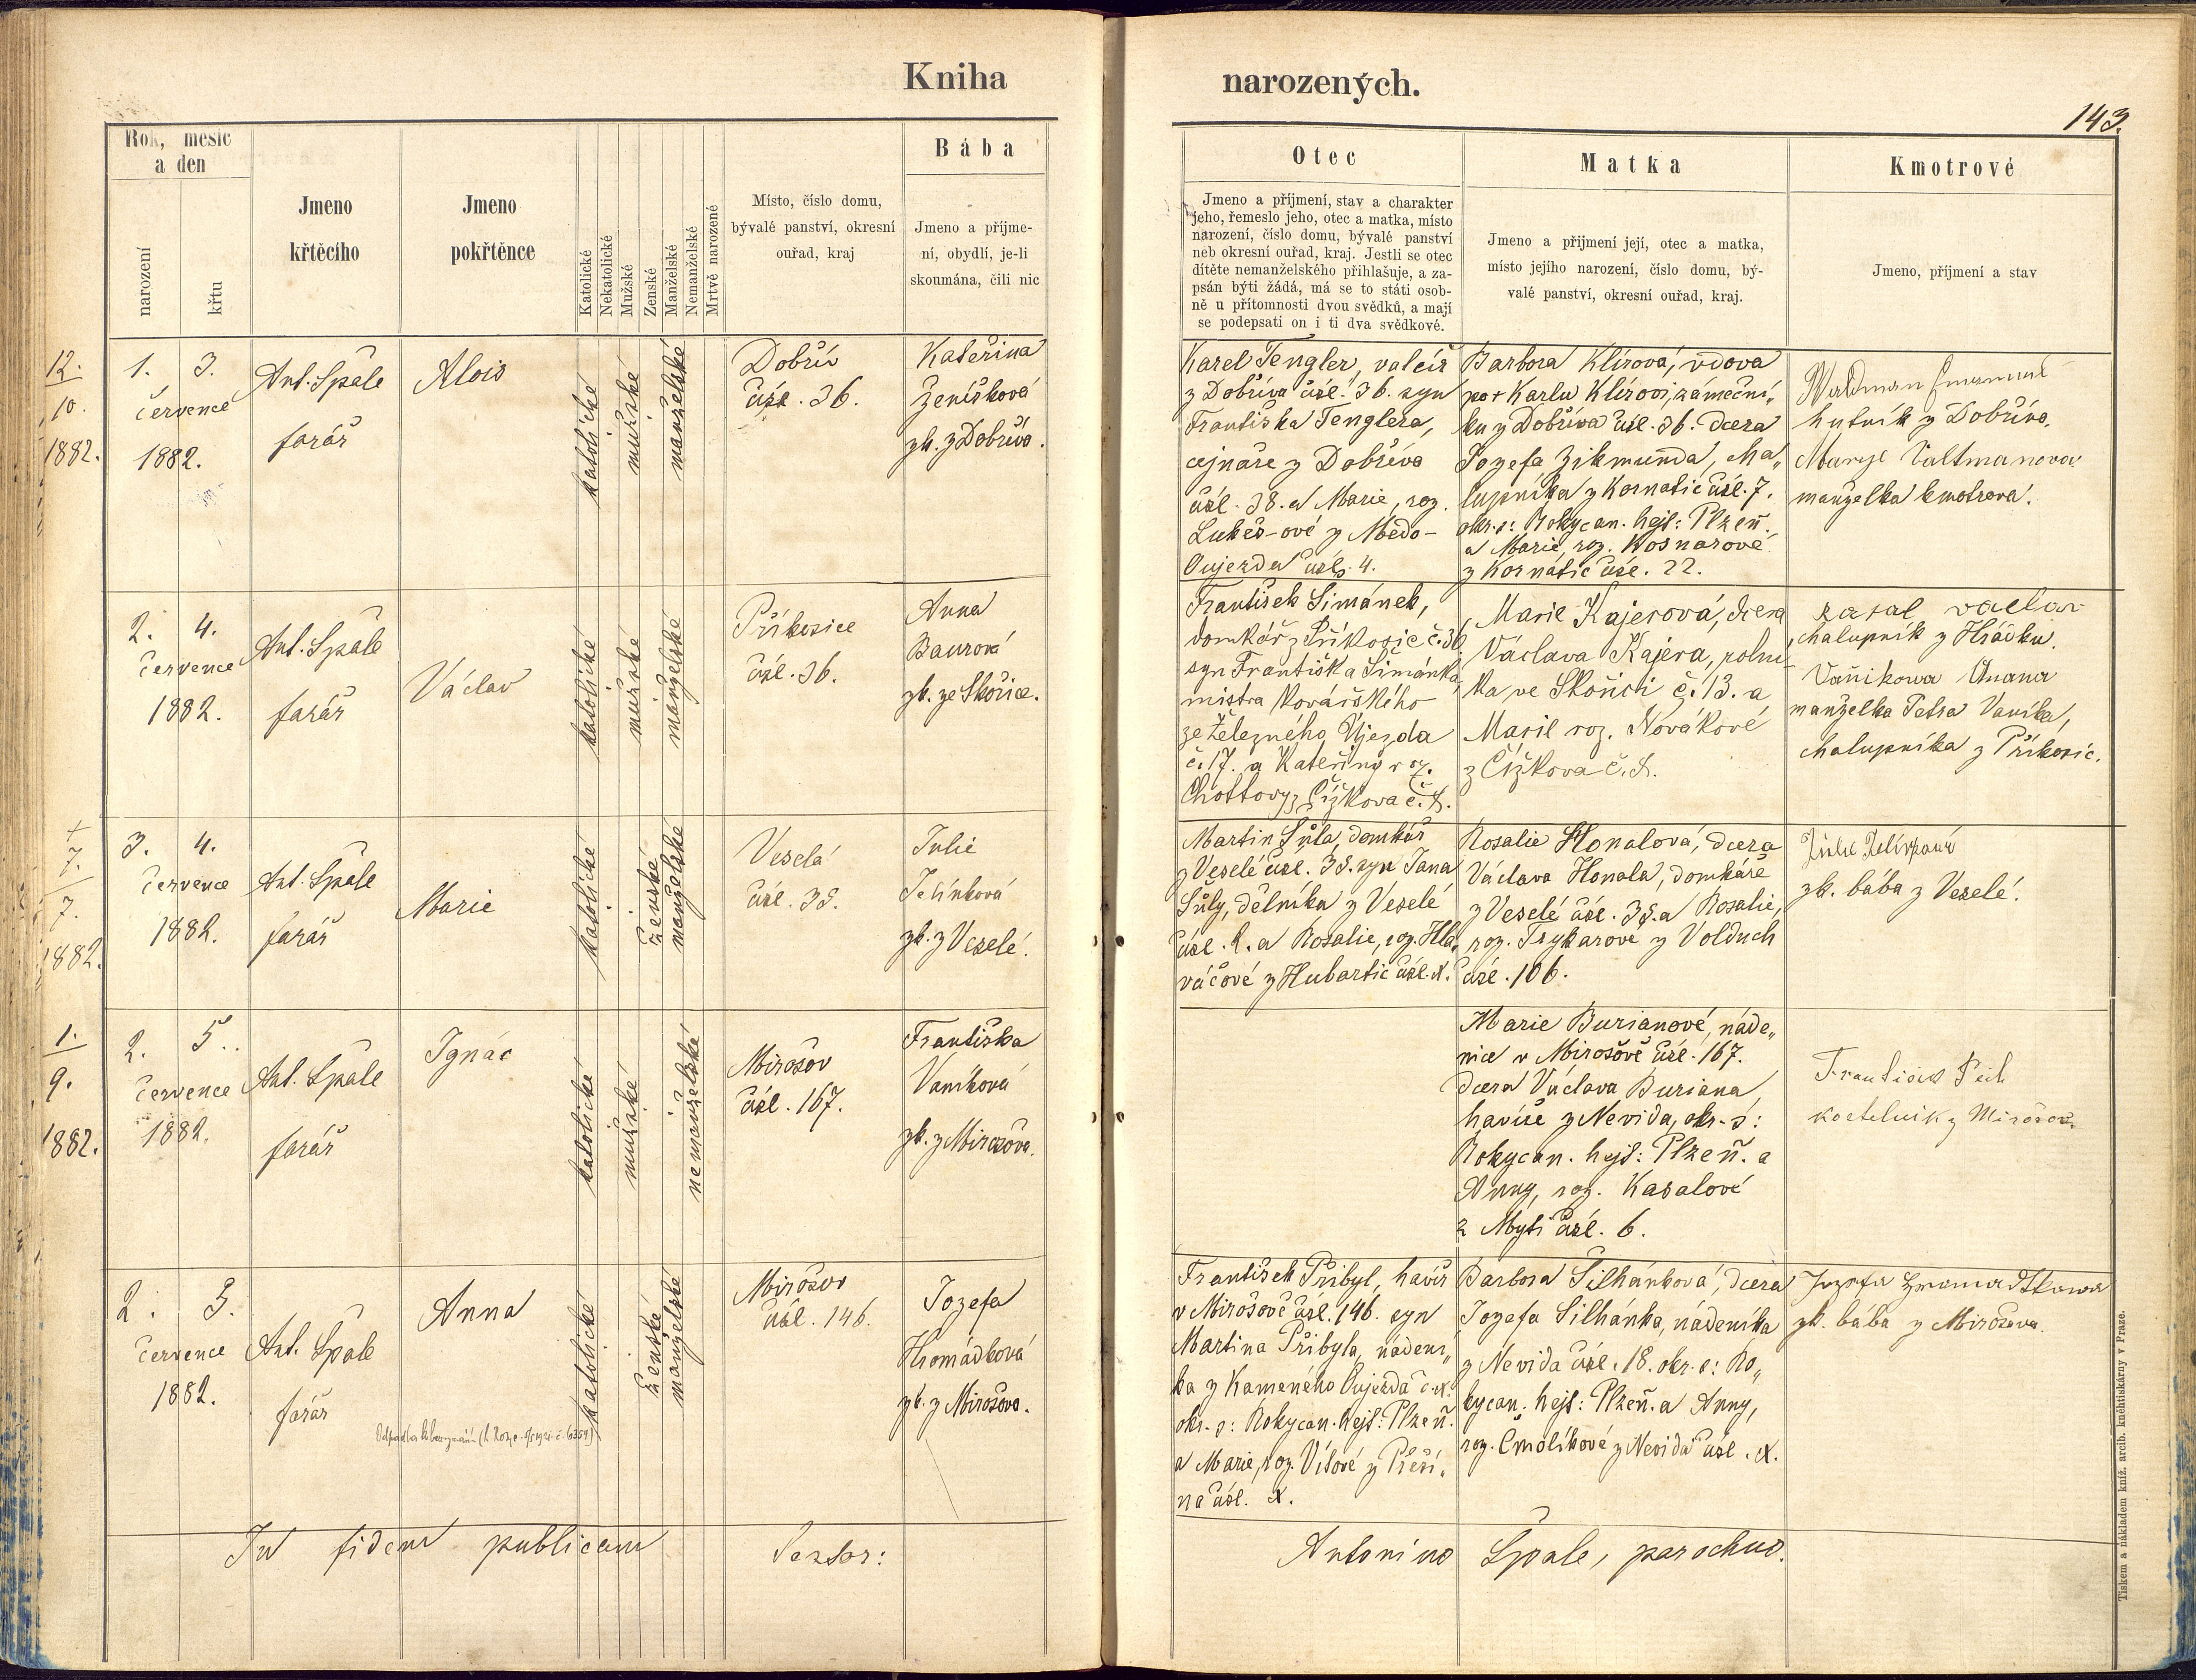 Kniha narozených.
143.
Rok, mesíc
a den
narození
křtu
Jmeno
křtěcího
Jmeno
pokřtěnce
Katolické
Nekatolické
Mužské
Ženské
Manželské
Nemanželské
Mrtvě narozené
Místo, číslo domu,
bývalé panství, okresní
ouřad, kraj
Bába
Jmeno a příjme-
ní, obydlí, je-li
skoumána, čili nic
Otec
Jmeno a příjmení, stav a charakter
jeho, řemeslo jeho, otec a matka, místo
narození, číslo domu, bývalé panství
neb okresní ouřad, kraj. Jestli se otec
dítěte nemanželského přihlašuje, a za-
psán býti žádá, má se to státi osob-
ně u přítomnosti dvou svědků, a mají
se podepsati on i ti dva svědkové.
Matka
Jmeno a přijmení její, otec a matka,
místo jejího narození, číslo domu, bý-
valé panství, okresní ouřad, kraj.
Kmotrové
Jmeno, příjmení a stav
12.
10.
1882.
1. 3.
července
1882.
Ant. Špale
farář
Alois
katolické
mužské
manželské
Dobřív
čísl. 36.
Kateřina
Ženíšková
zk. z Dobříva.
Karel Tengler, valcíř
z Dobříva čísl. 36. syn
Františka Tenglera,
cejnaře z Dobříva
čísl. 38. a Marie, roz.
Lukeš-ové z Mědo-
Oujezda čísl. 4.
Barbora Klírová, vdova
po + Karlu Klírovi, zámeční„
ku z Dobříva čísl. 36. dcera
Jozefa Zikmunda, cha„
lupníka z Kornatic čísl. 7.
okr. s: Rokycan. hejt: Plzeň.
a Marie, roz. Kosnarové
z Kornátic čísl. 22.
Waldman
hutník z Dobříva.
Marye Valtmanova
manželka kmotrova.
2. 4.
července
1882.
Ant. Špale
farář
Václav
katolické
mužské
manželské
Příkosice
čísl. 36.
Anna
Baurová
zk. ze Skořice.
František Šimánek,
domkář z Příkosic č. 36
syn Františka Šimánka,
mistra kovářského
ze Železného Újezda
č. 17. a Kateřiny roz.
Chottovy z Čížkova č.
Marie Kajerová, dcera
Václava Kajera, rolní-
ka ve Skořici č. 13. a
Marie roz. Novákové
z Čížkova č.
václav
chalupník z Hrádku.
Vaňikowa Anana
manželka Petra Vaníka,
chalupníka z Příkosic.
+
7.
7.
1882.
3. 4.
července
1882.
Ant. Špale
farář
Marie
katolické
ženské
manželské
Veselá
čísl. 38.
Julie
Jelínková
zk. z Veselé.
Martin Šůla, domkář
z Veselé čísl. 38. syn Jana
Šůly, dělníka z Veselé
čísl. 2. a Rosalie, roz. Hla„
váčové z Hubartic čísl. N.
Rosalie Honalová, dcera
Václava Honala, domkáře
z Veselé čísl. 38. a Rosalie,
roz. Trykarové z Volduch
čísl. 106.
zk. bába z Veselé.
1.
9.
1882.
2. 5.
července
1882.
Ant. Špale
farář
Ignác
katolické
mužské
nemanželské
Mirošov
čísl. 167.
Františka
Vaníková
zk. z Mirošova.
Marie Burianové, náde„
nice v Mirošově čísl. 167.
dcera Václava Buriana,
havíře z Nevida, okr. s:
Rokycan. hejt: Plzeň. a
Anny, roz. Kasalové
z Mýti čísl. 6.
František Peik
kostelnik z Mirošov.
2. 5.
července
1882.
Ant. Špale
farář
Anna
katolické
ženské
manželské
Mirošov
čísl. 146.
Jozefa
Hromádková
zk. z Mirošova.
František Přibyl, havíř
v Mirošově čísl. 146. syn
Martina Přibyla, nádení„
ka z Kameného Oujezda č. N.
okr. s: Rokycan. hejt: Plzeň.
a Marie, roz. Vítové z Přeší„
na čísl. N.
Barbora Šilhánková, dcera
Jozefa Šilhánka, nádeníka
z Nevida čísl. 18. okr. s: Ro„
kycan. hejt: Plzeň. a Anny,
roz. Čmolíkové z Nevida čísl. N.
Jozefa
zk. bába z Mirošova.
In fidem publicam
Antonius Špale, parochus.
Tiskem a nákladem kníž. arcib. kněhtiskárny v Praze.